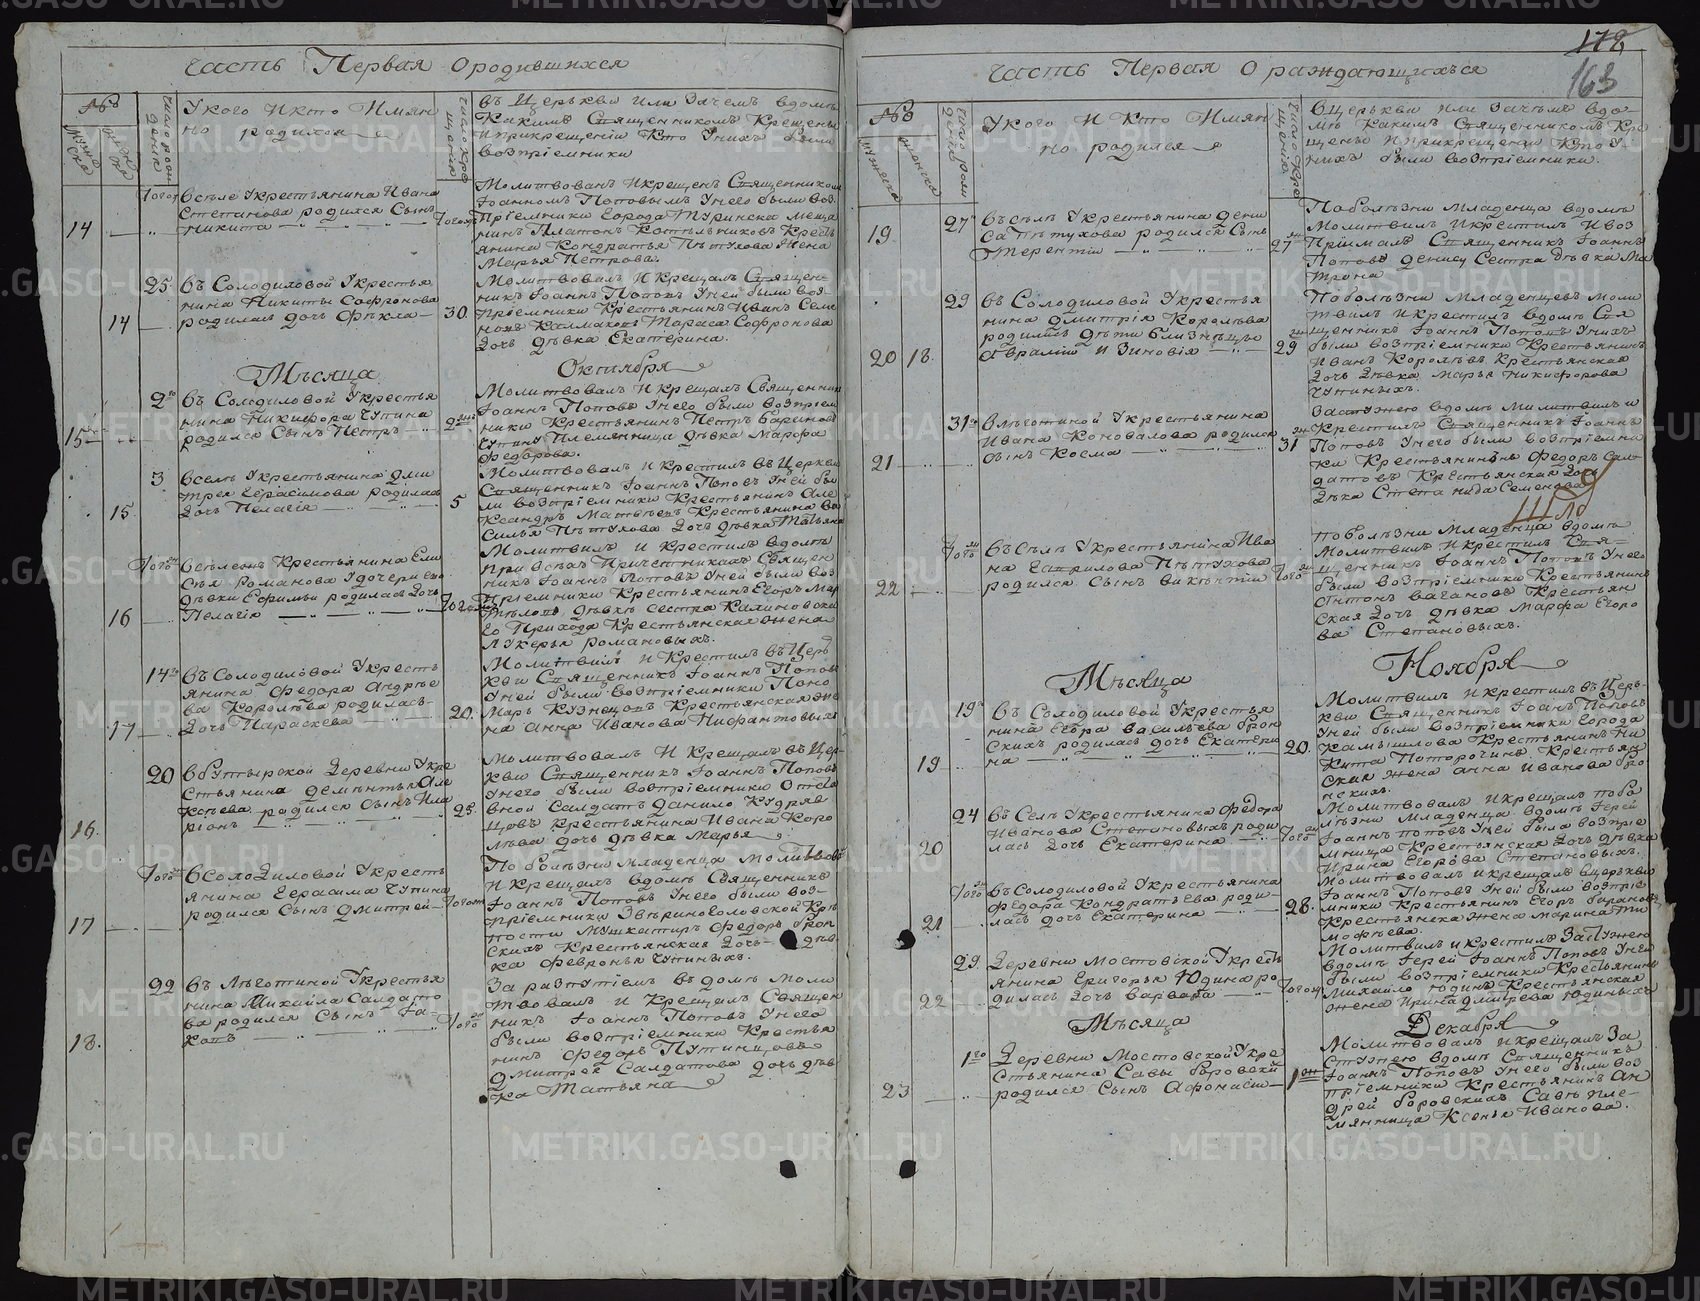 Часть Первая О родившихся
№
У кого И кто Имян
но родился
въ Церкви или Зачемъ вдомѣ
Какимъ Священникомъ Крещены
и прикрещеніи Кто Унихъ были
воспріемники
14
Того ж
Вселе Укрестьянина Ивана
Степанова родился Сынъ
Никита
Молитвованъ Икрещенъ Священникомъ
Іоанномъ Поповымъ Унего были вос
пріемники Города Туринска меща
нинъ Платонъ Котельниковъ Кресть
янина Кондратья Пѣтухова Жена
Марья Петрова.
14
25
Въ Солодиловой Укрестья
нина Никиты Софронова
родилась дочь Ѳекла
30.
Молитвовалъ Икрещалъ Священ
никъ Іоаннъ Поповъ Уней были вос
пріемники Крестьянинъ Иванъ Семе
новъ Калмаковъ Тараса Софронова
Дочь дѣвка Екатерина.
Мѣсяца
Октября
15
2го
Въ Солодиловой Укрестья
нина Никифора Чупина
родился Сынъ Петръ
Молитвовалъ Икрещалъ Священник
Іоаннъ Поповъ Унего были воспріем
ники Крестьянинъ Петръ Бариновъ
Чупину Племянница дѣвка Марфа
Федорова.
15
3
Вселѣ Укрестьянина Дми
трея Герасимова родилась
Дочь Пелагія
5
Молитвовалъ Икрестилъ въ Церкви
Священникъ Іоаннъ Поповъ Уней бы
ли воспріемники Крестьянинъ Але
ксандръ Матвѣевъ Крестьянина Ва
силья Пѣтухова Дочь дѣвка Татьяна
16
Того ж
Вселенъ Крестьянина Ели
сѣя Романова Удочери его
дѣвки Ефимьи родилась Дочь
Пелагія
Молитвилъ и Крестилъ вдомѣ
при всѣхъ Причетникахъ Священ
никъ Іоаннъ Поповъ Уней были вос
пріемники Крестьянинъ Егоръ Мар
дѣвкѣ сестра Калиновска
го Прихода Крестьянская Жена
Лукерья Романовыхъ.
17
14го
Въ Солодиловой Укресть
янина Федора Андрѣе
ва Королѣва родилась
Дочь Параскева
20.
Молитвилъ и Крестилъ въ Цер
кви Священникъ Іоаннъ Поповъ
Уней были воспріемники Поно
марь Кузнецовъ Крестьянская же
на Анна Иванова Нифантовыхъ
16.
20
Вбутырской Деревни Укре
стьянина Дементья Але
ксѣева родился Сынъ Ила
ріонъ
25.
Молитвовалъ И Крещалъ въ Цер
кви Священникъ Іоаннъ Поповъ
Унего были воспріемники Отста
вной Салдатъ Данило Кудряв
цовъ Крестьянина Ивана Коро
лѣва дочь дѣвка Марья
17
Того ж
ВСолодиловой Укресть
янина Герасима Чупина
родился Сынъ Дмитрей
Того ж
По болѣзни Младенца Молитвовалъ
И крещалъ вдомѣ Священникъ
Іоаннъ Поповъ Унего были вос
пріемники Звериноголовской Крѣ
пости Мушкатиръ Федоръ брон
скихъ Крестьянская Дочь дѣв
ка Февронья Чупиныхъ.
18.
22
Въ Лѣготиной Укрестья
нина Михайла Салдато
ва родился Сынъ Іа
ковъ
За распутіемъ въ домѣ Моли
твовалъ И Крещалъ Священ
никъ Іоаннъ Поповъ Унего
были воспріемники Крестья
нинъ Федоръ Путинцовъ
Дмитрея Салдатова дочь дѣв
ка Татьяна
172
163
Часть Первая О раждающихъся
№
У кого И Кто Имян
но родился
ВЦерькви Или Зачѣмъ вдо
мѣ Какимъ Священникомъ Кре
щены Иприкрещеніи Кто У
нихъ были воспріемники.
19
27
Въ селѣ Укрестьянина Дени
са Пѣтухова родился Сынъ
Терентій
27
По болѣзни Младенца вдомѣ
Молитвилъ Икрестилъ Ивос
Пріималъ Священникъ Іоаннъ
Поповъ Денису Сестра дѣвка Ма
трона
20 18.
29
Въ Солодиловой Укрестья
нина Дмитрія Королѣва
родились дѣти близнецы
Авраамій И Зиновія
29
По болѣзни Младенцевъ Моли
твилъ Икрестилъ вдомѣ Свя
щенникъ Іоаннъ Поповъ Унихъ
были воспріемники Крестьянинъ
Иванъ Королѣвъ Крестьянская
Дочь Дѣвка Марья Никифорова
Чупиныхъ.
21
31
Влѣготиной Укрестьянина
Ивана Коновалова родился
Сынъ Косма
31
За стужею вдомѣ Молитвилъ и
Крестилъ Священникъ Іоаннъ
Поповъ Унего были воспріемни
ки Крестьянинъ Федоръ Сал
датовъ Крестьянская Дочь
Дѣвка Степанида Семенова
22
Того ж
Въ Селѣ Укрестьянина Ива
на Гаврилова Пѣтухова
родился Сынъ викентій
По болѣзни Младенца вдомѣ
Молитвилъ Икрестилъ Свя
щенникъ Іоаннъ Поповъ Унего
были воспріемники Крестьянинъ
Антонъ вагановъ Крестьян
ская Дочь дѣвка Марфа Егоро
ва Степановыхъ.
Мѣсяца
Ноября
19
19
Въ Солодиловой Укрестья
нина Егора васильева брон
скихъ родилась дочь Екатери
на
20.
Молитвилъ Икрестилъ въ Церь
кви Священникъ Іоаннъ Поповъ
Уней были воспріемники Города
Камышлова Крестьянинъ Ни
кита Поторочинъ Крестьян
ская жена Анна Иванова бро
нскихъ.
20
24
Въ Селѣ Укрестьянина Федора
Иванова Степановыхъ роди
лась Дочь Екатерина
Молитвовалъ Икрещалъ побо
лѣзни Младенца вдомѣ Іерей
Іоаннъ Поповъ Уней была воспріе
мница Крестьянская Дочь дѣвка
Ирина Егорова Степановыхъ.
21
Того ж
Въ Солодиловой Укрестьянина
Федора Кондратьева роди
лась дочь Екатерина
28.
Молитвовалъ Икрещалъ вцерькви
Іоаннъ Поповъ Уней были воспріе
мники Крестьянинъ Егоръ барановъ
Крестьянска жена Марина Ти
мофѣева.
22
29.
Деревни Мостовской Укресть
янина Григорья Юдина ро
дилась Дочь Варвара
Молитвилъ Икрестилъ За Стужею
вдомѣ Іерей Іоаннъ Поповъ Уней
были воспріемники Крестьянинъ
Михайло Юдинъ Крестьянская
Жена Ирина Дмитрева Юдиныхъ
Мѣсяца
Декабря
23
1го
Деревни Мостовской Укре
стьянина Савы боровски
родился Сынъ Афонасій
Молитвовалъ Икрещалъ За
Стужею вдомѣ Священникъ
Іоаннъ Поповъ Унего были вос
пріемники Крестьянинъ Ан
дрей боровскихъ Савѣ Пле
мянница Ксенья Иванова.